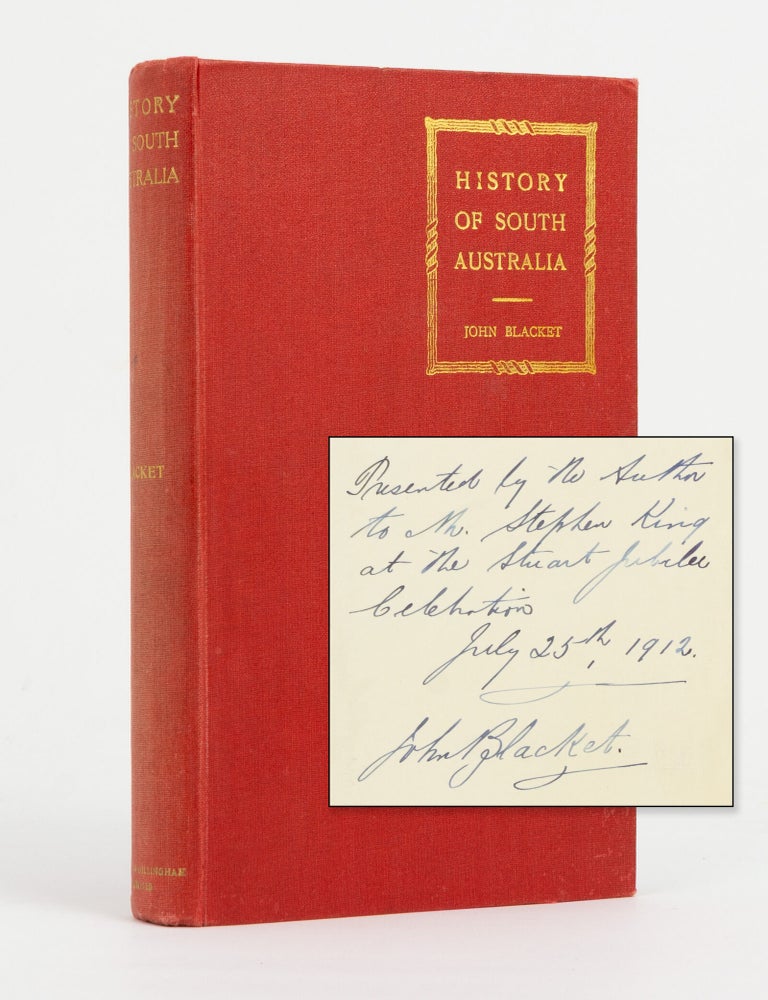 STORY
SOUTH
TRALIA
ACKET
LLINGHAM
HISTORY
OF SOUTH
AUSTRALIA
JOHN BLACKET
Presented by the Author
to Mr. Stephen King
at the Stuart Jubilee
Celebration
July 25th, 1912.
John Blacket.